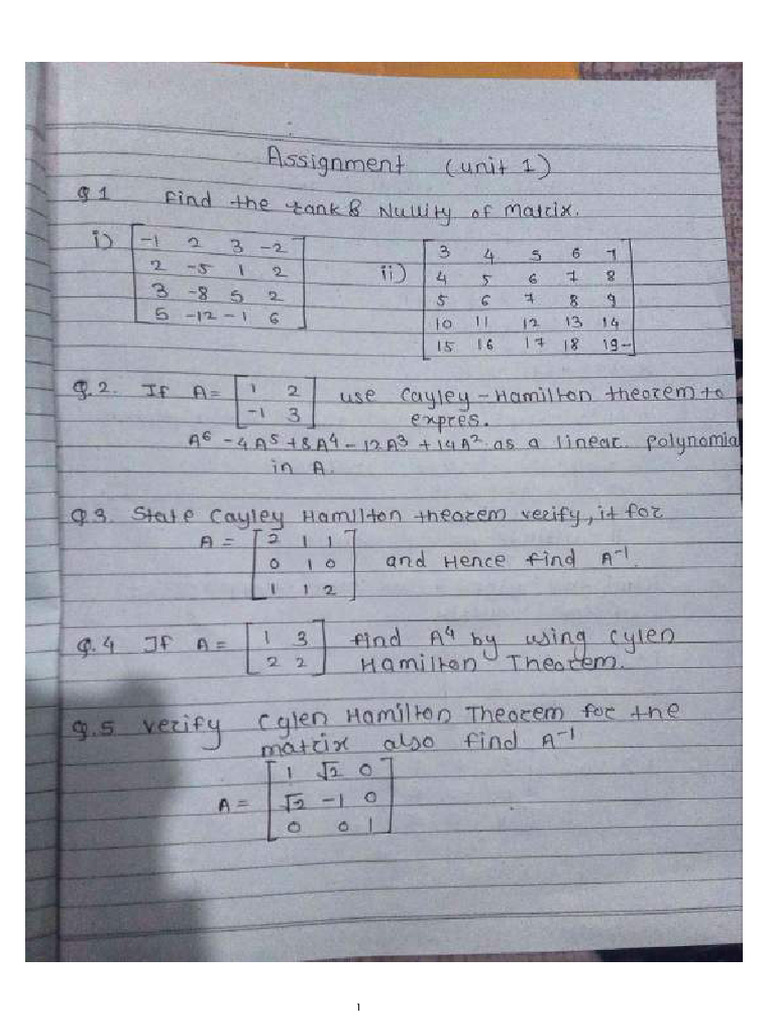 Assignment (unit 1)
Q 1 Find the rank & Nullity of Matrix.
i) [ -1 2 3 -2
2 -5 1 2
3 -8 5 2
5 -12 -1 6 ]
ii) [ 3 4 5 6 7
4 5 6 7 8
5 6 7 8 9
10 11 12 13 14
15 16 17 18 19 ]
Q.2. If A = [ 1 2
-1 3 ] use Cayley-Hamilton theorem to
expres.
A⁶ - 4A⁵ + 8A⁴ - 12A³ + 14A² as a linear polynomia
in A.
Q 3. State Cayley Hamilton theorem verify, it for
A = [ 2 1 1
0 1 0
1 1 2 ] and Hence find A⁻¹
Q.4 If A = [ 1 3
2 2 ] find A⁴ by using Cylen
Hamilton Theorem.
Q.5 verify Cylen Hamilton Theorem for the
matrix also find A⁻¹
A = [ 1 √2 0
√2 -1 0
0 0 1 ]
1